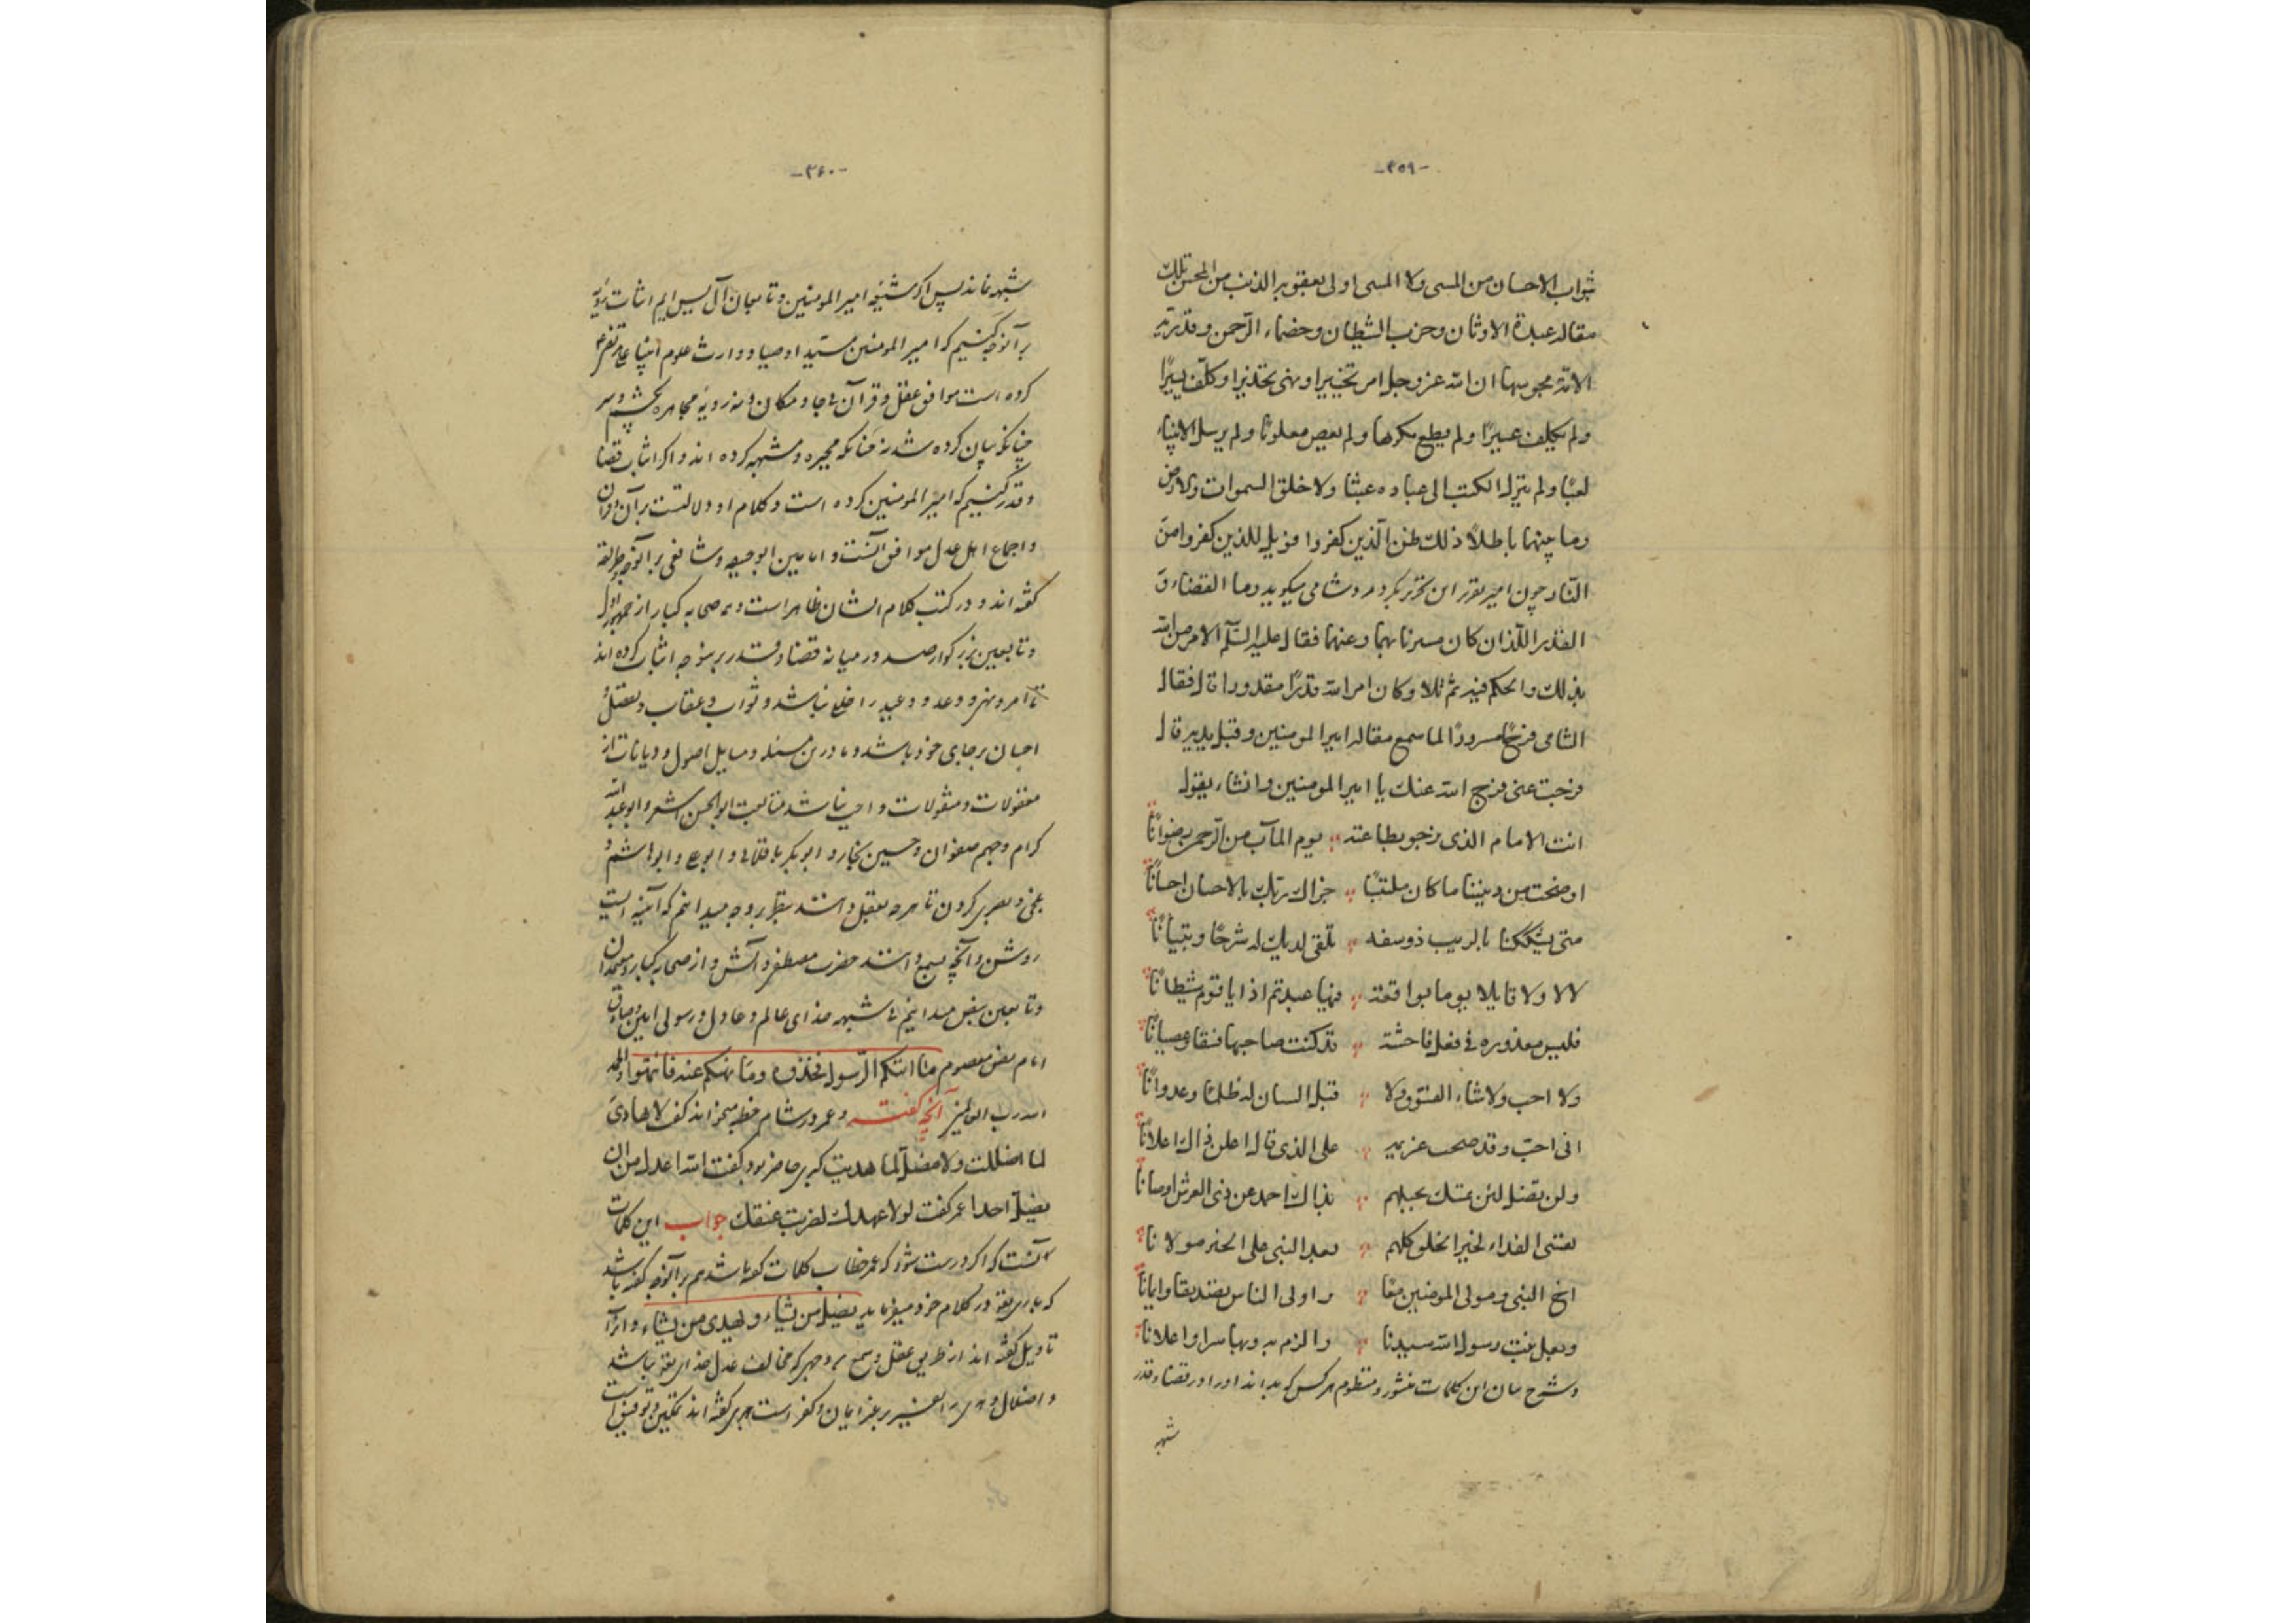 -۳۵۹-
ثواب الاحسان من المسی ولا المسی اولی بعقوبة الذنب من المحسن تلك
مقالة عبدة الاوثان وحزب الشیطان وخصماء الرّحمن وقدریّة
الامّة مجوسها ان الله عز وجل امر تخییرا ونهی تحذیرا وکلّف یسیرًا
ولم یکلف عسیرًا ولم یطع مکرها ولم یعص مغلوبًا ولم یرسل الانبیاء
لعبًا ولم ینزل الکتب الی عباده عبثا ولا خلق السموات والارض
وما بینهما باطلاً ذلك ظن الّذین کفروا فویل للذین کفروا من
النّار چون امیر تقریر این تحریر بکرد مرد شامی میکوید وما القضاء و
القدر اللّذان کان مسیرنا بهما وعنهما فقال علیه السّلم الامر من الله
بذلك والحکم فیه ثم تلا وکان امر الله قدرًا مقدورا قال فقال
الشامی فرحًا مسرورًا لما سمع مقالة امیر المومنین وقبل یدیه قال
فرجت عنی فرج الله عنك یا امیر المومنین وانشاء یقول
انت الامام الذی نرجو بطاعته یوم المآب من الرّحمن رضوانًا
اوضحت من دیننا ما کان ملتبًا جزاك ربّك بالاحسان احسانًا
متی یشککنا بالریب ذو سفه تلقی لدیك له شرحًا وتبیانًا
لالا ولا قایلا یوما بواقعة فیها عبدتم اذا یا قوم شیطانًا
فلیس معذوره فی فعل فاحشة قد کنت صاحبها فسقا وعصیانًا
ولا احب ولا شاء الفسوق ولا قبل السان له ظلمًا وعدوانًا
انی احبّ وقد صحت عزیمه علی الذی قال اعلن ذاك اعلانًا
ولن تضل لئن عسك بحبلهم بذاك احمد عن ذی العرش اوصانا
نفسی الفداء لخیر الخلق کلهم بعد النبی علی الخیر مولانا
اخ النبی ومولی المومنین معًا واولی الناس تصدیقا وایمانًا
وبعل بنت رسول الله سیدنا والزم به وبها سرا واعلانا
وشرح بیان این کلمات منثور ومنظوم هرکس که بداند اورا در قضا وقدر
شبهه
-۳۶۰-
شبهه نماند پس اکر شیعه امیر المومنین وتابعان آل یس ایم اثبات رؤیه
بر آنوجه کنیم که امیر المومنین سیّد اوصیا ووارث علوم انبیا علی مرتضی
کرده است موافق عقل وقرآن بی جا ومکان ونه رویة مجاهره بچشم وسر
چنانکه بیان کرده شد نه چنانکه مجبره ومشبهه کرده اند واکر اثبات قضا
وقدر کنیم که امیر المومنین کرده است وکلام او دلالتست بر آن وقرآن
واجماع اهل عدل موافق آنست وامامین ابوحنیفه وشافعی بر آنوجه وطریقه
کفته اند ودر کتب کلام ایشان ظاهر است وهمه صحابه کبار از
وتابعین بزرکوار صد در میانه قضا وقدر بر این وجه اثبات کرده اند
تا امر ونهی ووعد ووعید را خلع نباشد وثواب وعقاب وتعقل
احیان برجای خود باشد وما درین مسئله ومسایل اصول ودیانات از
معقولات ومنقولات واجب نباشد متابعت ابوالحسن اشعر وابوعبدالله
کرام وجهم صفوان وحسین نجار وابوبکر باقلانی وابوعلی وابوهاشم و
بلخی وبصری کردن تا هرچه بعقل دانستند بنظر بر وجه میدانیم که آیینه ایست
روشن وآنچه بسمع دانستند حضرت مصطفی وآلش واز صحابه کبار ومعتمدان
وتابعین بنص میدانیم بی شبهه خدای عالم وعادل ورسولی امین وصادق
امام نص معصوم ما اتیکم الرّسول فخذوه وما نهیکم عنه فانتهوا والحمد
لله رب العالمین آنچه کفته وعمر در شام خطبه میخواند کفت لا هادی
لما اضللت ولا مضلّ لما هدیت کبری حاضر بود کفت الله اعدل من ان
یضلّ احدا عمر کفت لولا عهدك لضربت عنقك جواب این کلمات
آنست که اکر درست شود که عمر خطاب کلمات کفته باشد هم بر آنوجه کفته باشد
که باری تعالی در کلام خود میفرماید یضل من یشاء ویهدی من یشاء وانرا
تاویل کفته اند از طریق عقل وسمع بر وجهی که مخالف عدل خدای تعالی نباشد
واضلال وهدی را تفسیر بر غیر ایمان وکفر است جری کفته اند تمکین وتوفیق است